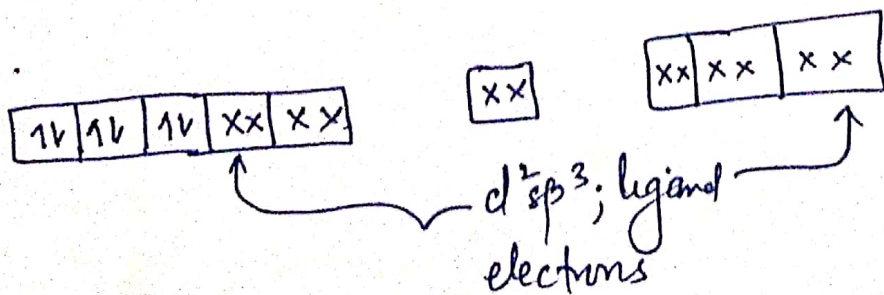 1L 1L 1L xx xx xx xx xx xx
d²sp³; ligand
electrons